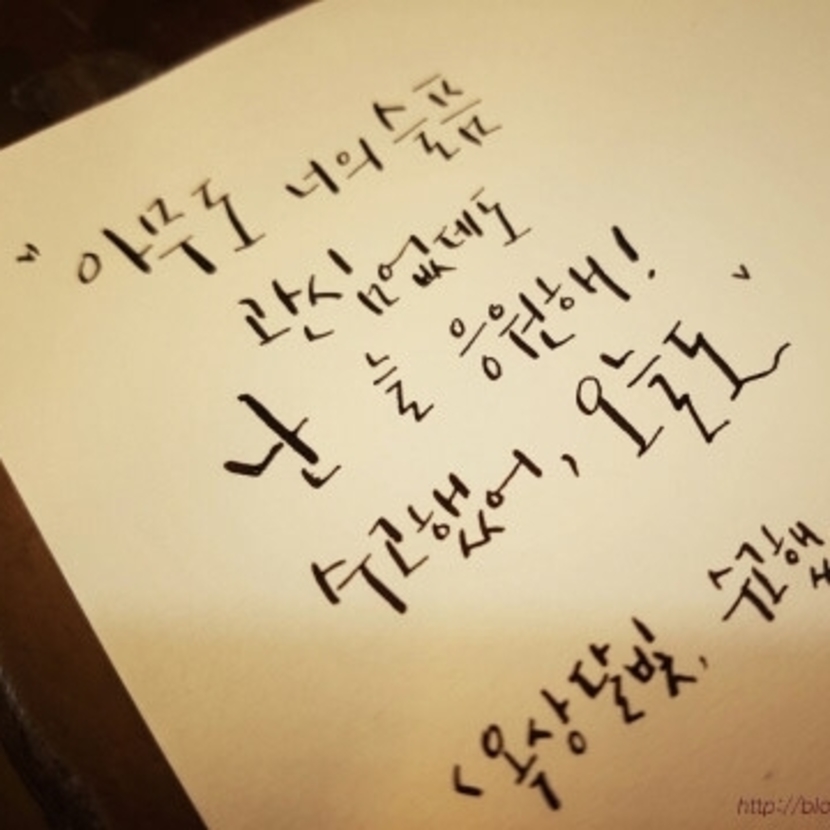 "아무도 너의 슬픔
관심없데도
난 늘 응원해!
수고했어, 오늘도"
<옥상달빛, 수고했
http://blo